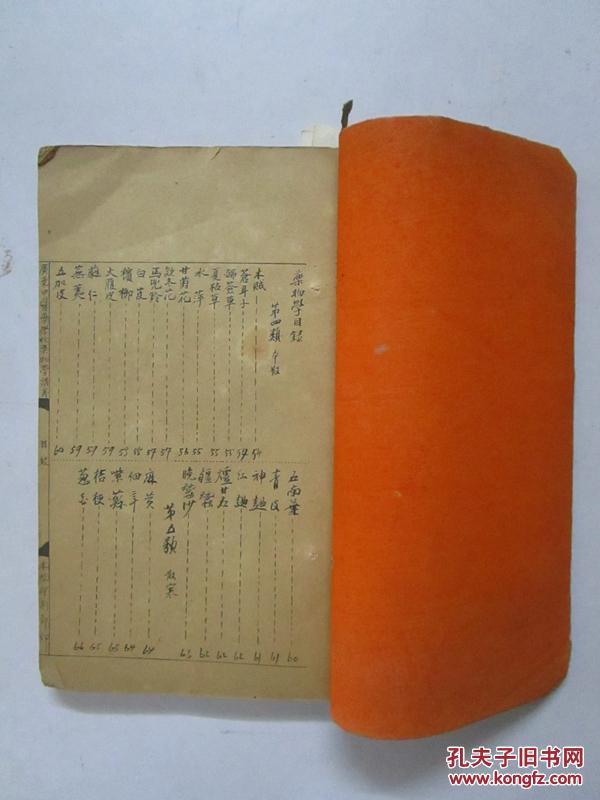 藥物學目錄
第四類 平散
木賊 54
蒼耳子 54
豨薟草 55
夏枯草 55
水萍 55
甘菊花 56
款冬花 57
馬兜鈴 57
白芨 58
檳榔 53
大腹皮 59
蕤仁 59
蕪荑 59
五加皮 60
石南葉 60
青皮 61
神麯 61
紅麯 62
爐甘石 62
殭蠶 62
晚蠶沙 63
第五類 散寒
麻黃 64
細辛 64
紫蘇 65
桔梗 65
葱白 66
目錄
本校印刷部印
孔夫子旧书网
www.kongfz.com